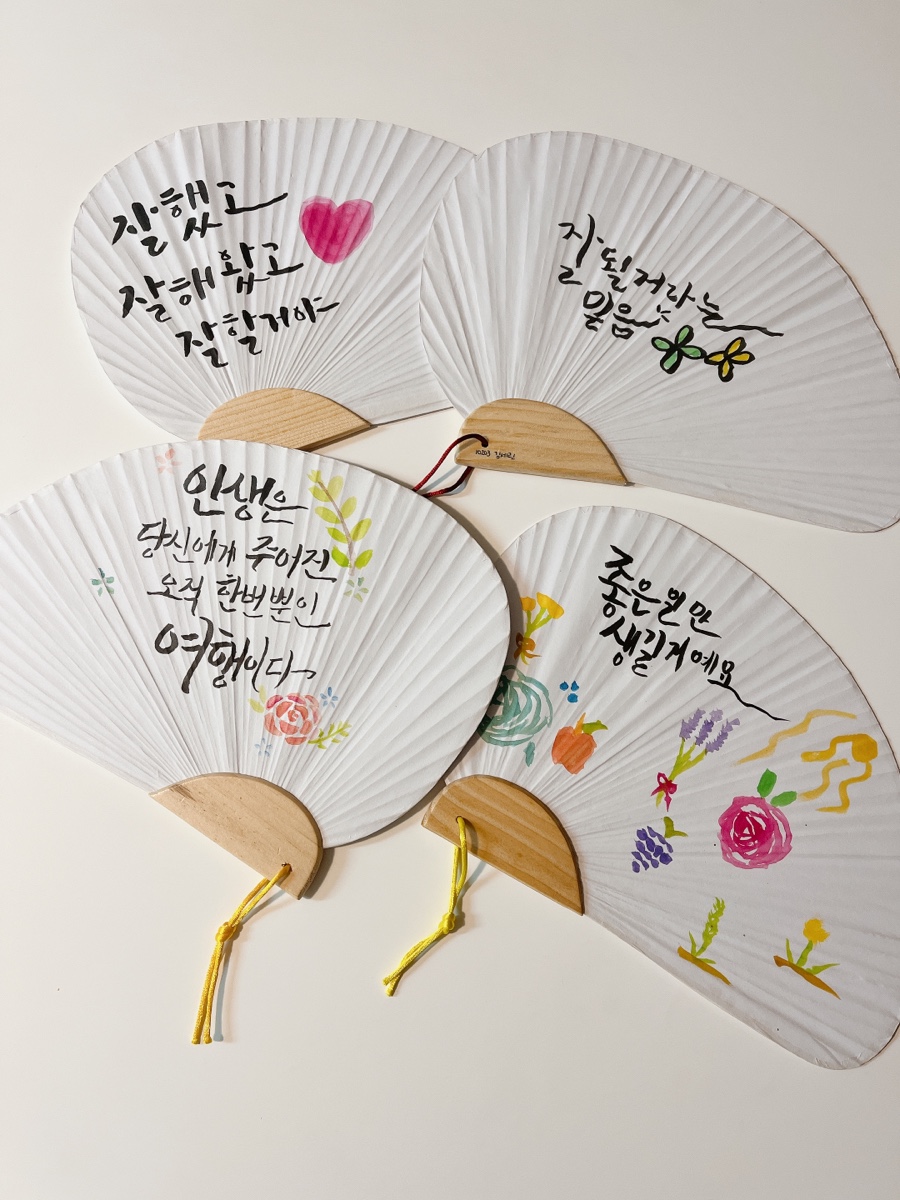 잘했고
잘해왔고
잘할거야
잘될거라는
믿음
인생은
당신에게 주어진
오직 한번뿐인
여행이다
좋은일만
생길거예요